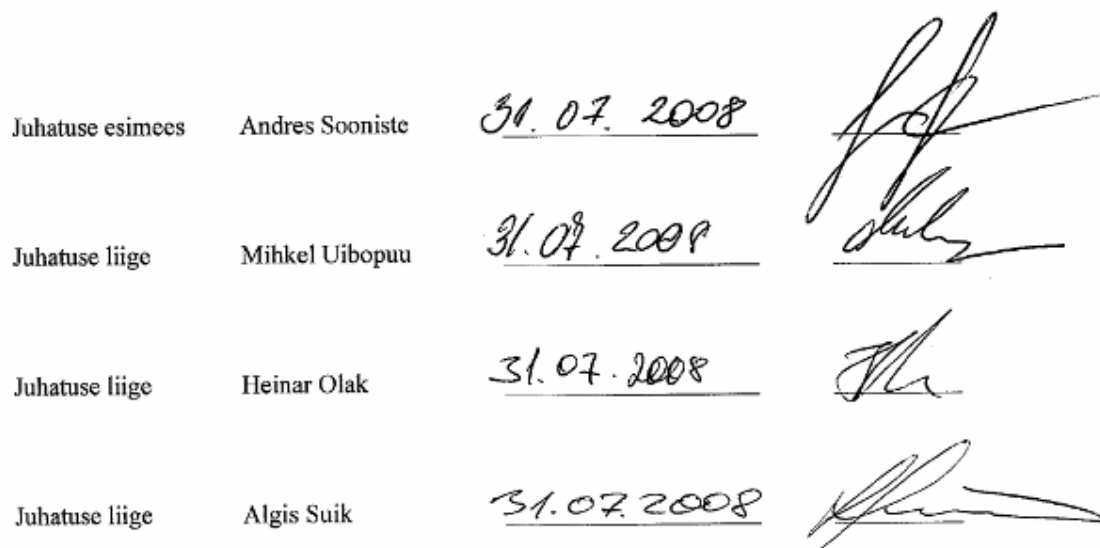 Juhatuse esimees Andres Sooniste 31.07.2008
Juhatuse liige Mihkel Uibopuu 31.07.2008
Juhatuse liige Heinar Olak 31.07.2008
Juhatuse liige Algis Suik 31.07.2008